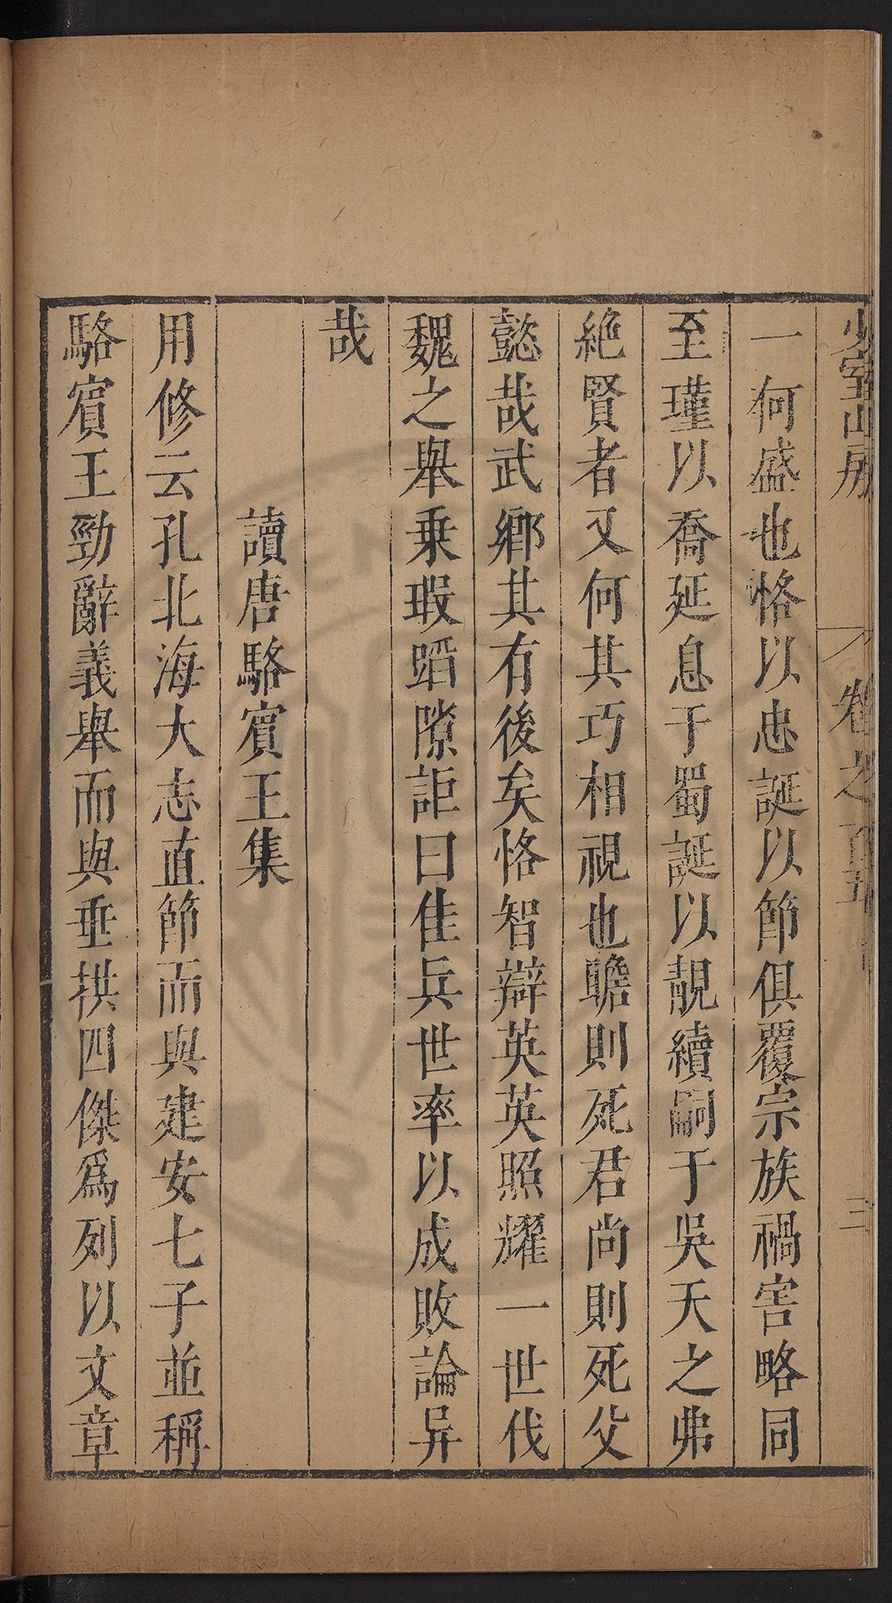 少室山房 卷之一百五 三
一何盛也恪以忠誕以節俱覆宗族禍害略同
至瑾以喬延息于蜀誕以靚續嗣于吳天之弗
絶賢者又何其巧相視也瞻則死君尚則死父
懿哉武鄉其有後矣恪智辯英英照耀一世伐
魏之舉乗瑕蹈隙詎曰佳兵世率以成敗論异
哉
讀唐駱賔王集
用修云孔北海大志直節而與建安七子並稱
駱賔王勁辭義舉而與垂拱四傑爲列以文章